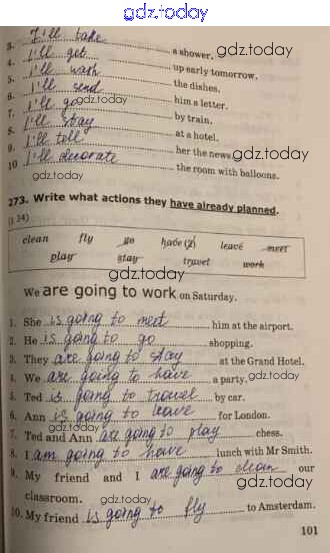 gdz.today
3. I'll take a shower.
gdz.today
4. I'll get up early tomorrow.
5. I'll wash the dishes.
6. I'll send him a letter.
gdz.today
7. I'll go by train.
8. I'll stay at a hotel.
9. I'll tell her the news
gdz.today
10 I'll decorate the room with balloons.
gdz.today
273. Write what actions they have already planned.
clean fly go have (2) leave meet
play stay travel work
gdz.today
We are going to work on Saturday.
gdz.today
1. She is going to meet him at the airport.
2. He is going to go shopping.
gdz.today
3. They are going to stay at the Grand Hotel.
4. We are going to have a party.
gdz.today
5. Ted is going to travel by car.
6. Ann is going to leave for London.
gdz.today
7. Ted and Ann are going to play chess.
8. I am going to have lunch with Mr Smith.
gdz.today
9. My friend and I are going to clean our
classroom.
gdz.today
10. My friend is going to fly to Amsterdam.
101
gdz.today